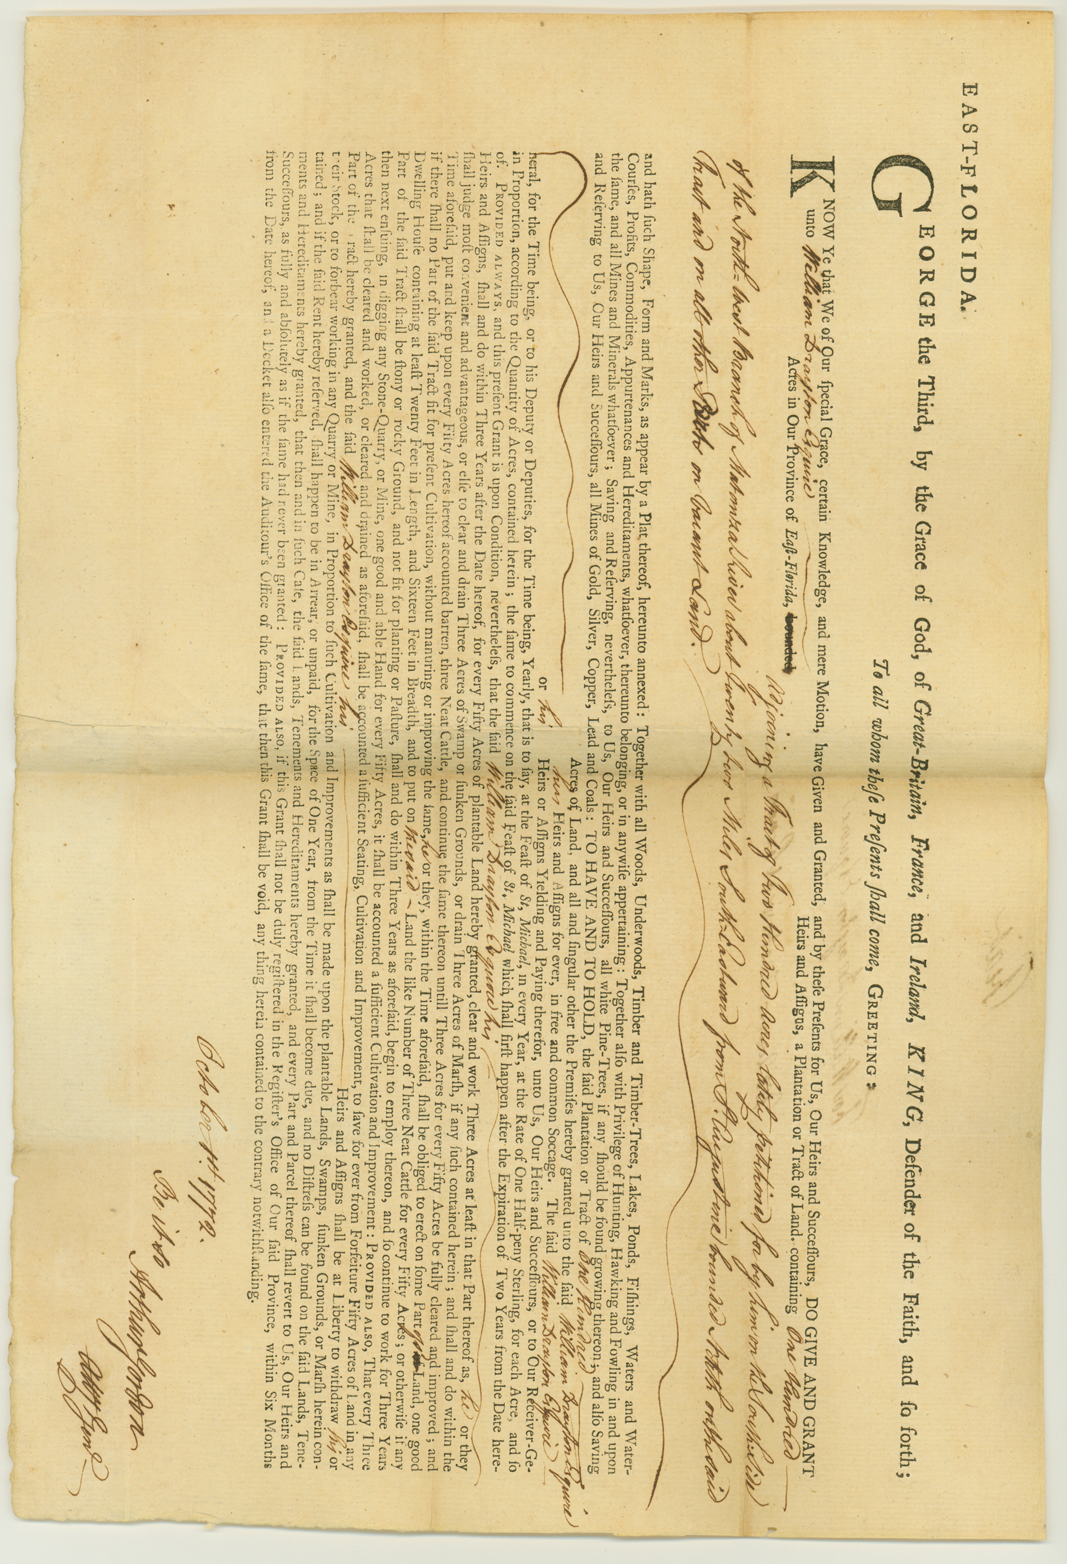 EAST-FLORIDA.
GEORGE the Third, by the Grace of God, of Great-Britain, France, and Ireland, KING, Defender of the Faith, and ſo forth;
To all whom theſe Preſents ſhall come, GREETING:
KNOW Ye that We of Our ſpecial Grace, certain Knowledge, and mere Motion, have Given and Granted, and by theſe Preſents for Us, Our Heirs and Succeſſours, DO GIVE AND GRANT
unto William Drayton Esquire Heirs and Aſſigns, a Plantation or Tract of Land, containing One Hundred
Acres in Our Province of Eaſt-Florida, bounded Adjoining a Tract of two Hundred acres lately petitioned for by him on the South side
of the North-west Branch of Matanza River about twenty two Miles South Eastward from St Augustine bounded North on the said
Tract and on all other Sides on vacant Land.
and hath ſuch Shape, Form and Marks, as appear by a Plat thereof, hereunto annexed: Together with all Woods, Underwoods, Timber and Timber-Trees, Lakes, Ponds, Fiſhings, Waters and Water-
Courſes, Profits, Commodities, Appurtenances and Hereditaments, whatſoever, thereunto belonging, or in anywiſe appertaining: Together alſo with Privilege of Hunting, Hawking and Fowling in and upon
the ſame, and all Mines and Minerals whatſoever; Saving and Reſerving, nevertheleſs, to Us, Our Heirs and Succeſſours, all white Pine-Trees, if any ſhould be found growing thereon; and alſo Saving
and Reſerving to Us, Our Heirs and Succeſſours, all Mines of Gold, Silver, Copper, Lead and Coals: TO HAVE AND TO HOLD, the ſaid Plantation or Tract of One Hundred
Acres of Land, and all and ſingular other the Premiſes hereby granted unto the ſaid William Drayton Esquire
his Heirs and Aſſigns for ever, in free and common Soccage. The ſaid William Drayton Esquire
or his Heirs or Aſſigns Yielding and Paying therefor, unto Us, Our Heirs and Succeſſours, or to Our Receiver-Ge-
neral, for the Time being, or to his Deputy or Deputies, for the Time being, Yearly, that is to ſay, at the Feaſt of St. Michael, in every Year, at the Rate of One Half-peny Sterling, for each Acre, and ſo
in Proportion, according to the Quantity of Acres, contained herein; the ſame to commence on the ſaid Feaſt of St. Michael which, ſhall firſt happen after the Expiration of Two Years from the Date here-
of. PROVIDED ALWAYS, and this preſent Grant is upon Condition, nevertheleſs, that the ſaid William Drayton Esquire his
Heirs and Aſſigns, ſhall and do within Three Years after the Date hereof, for every Fifty Acres of plantable Land hereby granted, clear and work Three Acres at leaſt in that Part thereof as, he or they
ſhall judge moſt convenient and advantageous, or elſe to clear and drain Three Acres of Swamp or ſunken Grounds, or drain Three Acres of Marſh, if any ſuch contained herein; and ſhall and do within the
Time aforeſaid, put and keep upon every Fifty Acres hereof accounted barren, three Neat Cattle, and continue the ſame thereon untill Three Acres for every Fifty Acres be fully cleared and improved; and
if there ſhall no Part of the ſaid Tract fit for preſent Cultivation, without manuring or improving the ſame, he or they, within the Time aforeſaid, ſhall be obliged to erect on ſome Part of ſaid Land, one good
Dwelling Houſe containing at leaſt Twenty Feet in Length, and Sixteen Feet in Breadth, and to put on the said Land the like Number of Three Neat Cattle for every Fifty Acres; or otherwiſe if any
Part of the ſaid Tract ſhall be ſtony or rocky Ground, and not fit for planting or Paſture, ſhall and do within Three Years as aforeſaid, begin to employ thereon, and ſo continue to work for Three Years
then next enſuing, in digging any Stone-Quarry, or Mine, one good and able Hand for every Fifty Acres, it ſhall be accounted a ſufficient Cultivation and Improvement: PROVIDED ALSO, That every Three
Acres that ſhall be cleared and worked, or cleared and drained as aforeſaid, ſhall be accounted a ſufficient Seating, Cultivation and Improvement, to ſave for ever from Forfeiture Fifty Acres of Land in any
Part of the Tract hereby granted, and the ſaid William Drayton Esquire his Heirs and Aſſigns ſhall be at Liberty to withdraw his or
their Stock, or to forbear working in any Quarry or Mine, in Proportion to ſuch Cultivation and Improvements as ſhall be made upon the plantable Lands, Swamps, ſunken Grounds, or Marſh herein con-
tained; and if the ſaid Rent hereby reſerved, ſhall happen to be in Arrear, or unpaid, for the Space of One Year, from the Time it ſhall become due, and no Diſtreſs can be found on the ſaid Lands, Tene-
ments and Hereditaments hereby granted, that then and in ſuch Caſe, the ſaid Lands, Tenements and Hereditaments hereby granted, and every Part and Parcel thereof ſhall revert to Us, Our Heirs and
Succeſſours, as fully and abſolutely as if the ſame had never been granted: PROVIDED ALSO, if this Grant ſhall not be duly regiſtered in the Regiſter's Office of Our ſaid Province, within Six Months
from the Date hereof, and a Docket alſo entered the Auditour's Office of the ſame, that then this Grant ſhall be void, any thing herein contained to the contrary notwithſtanding.
October 1st. 1772.
Be it so
Arthur Gordon
Atty Gen.